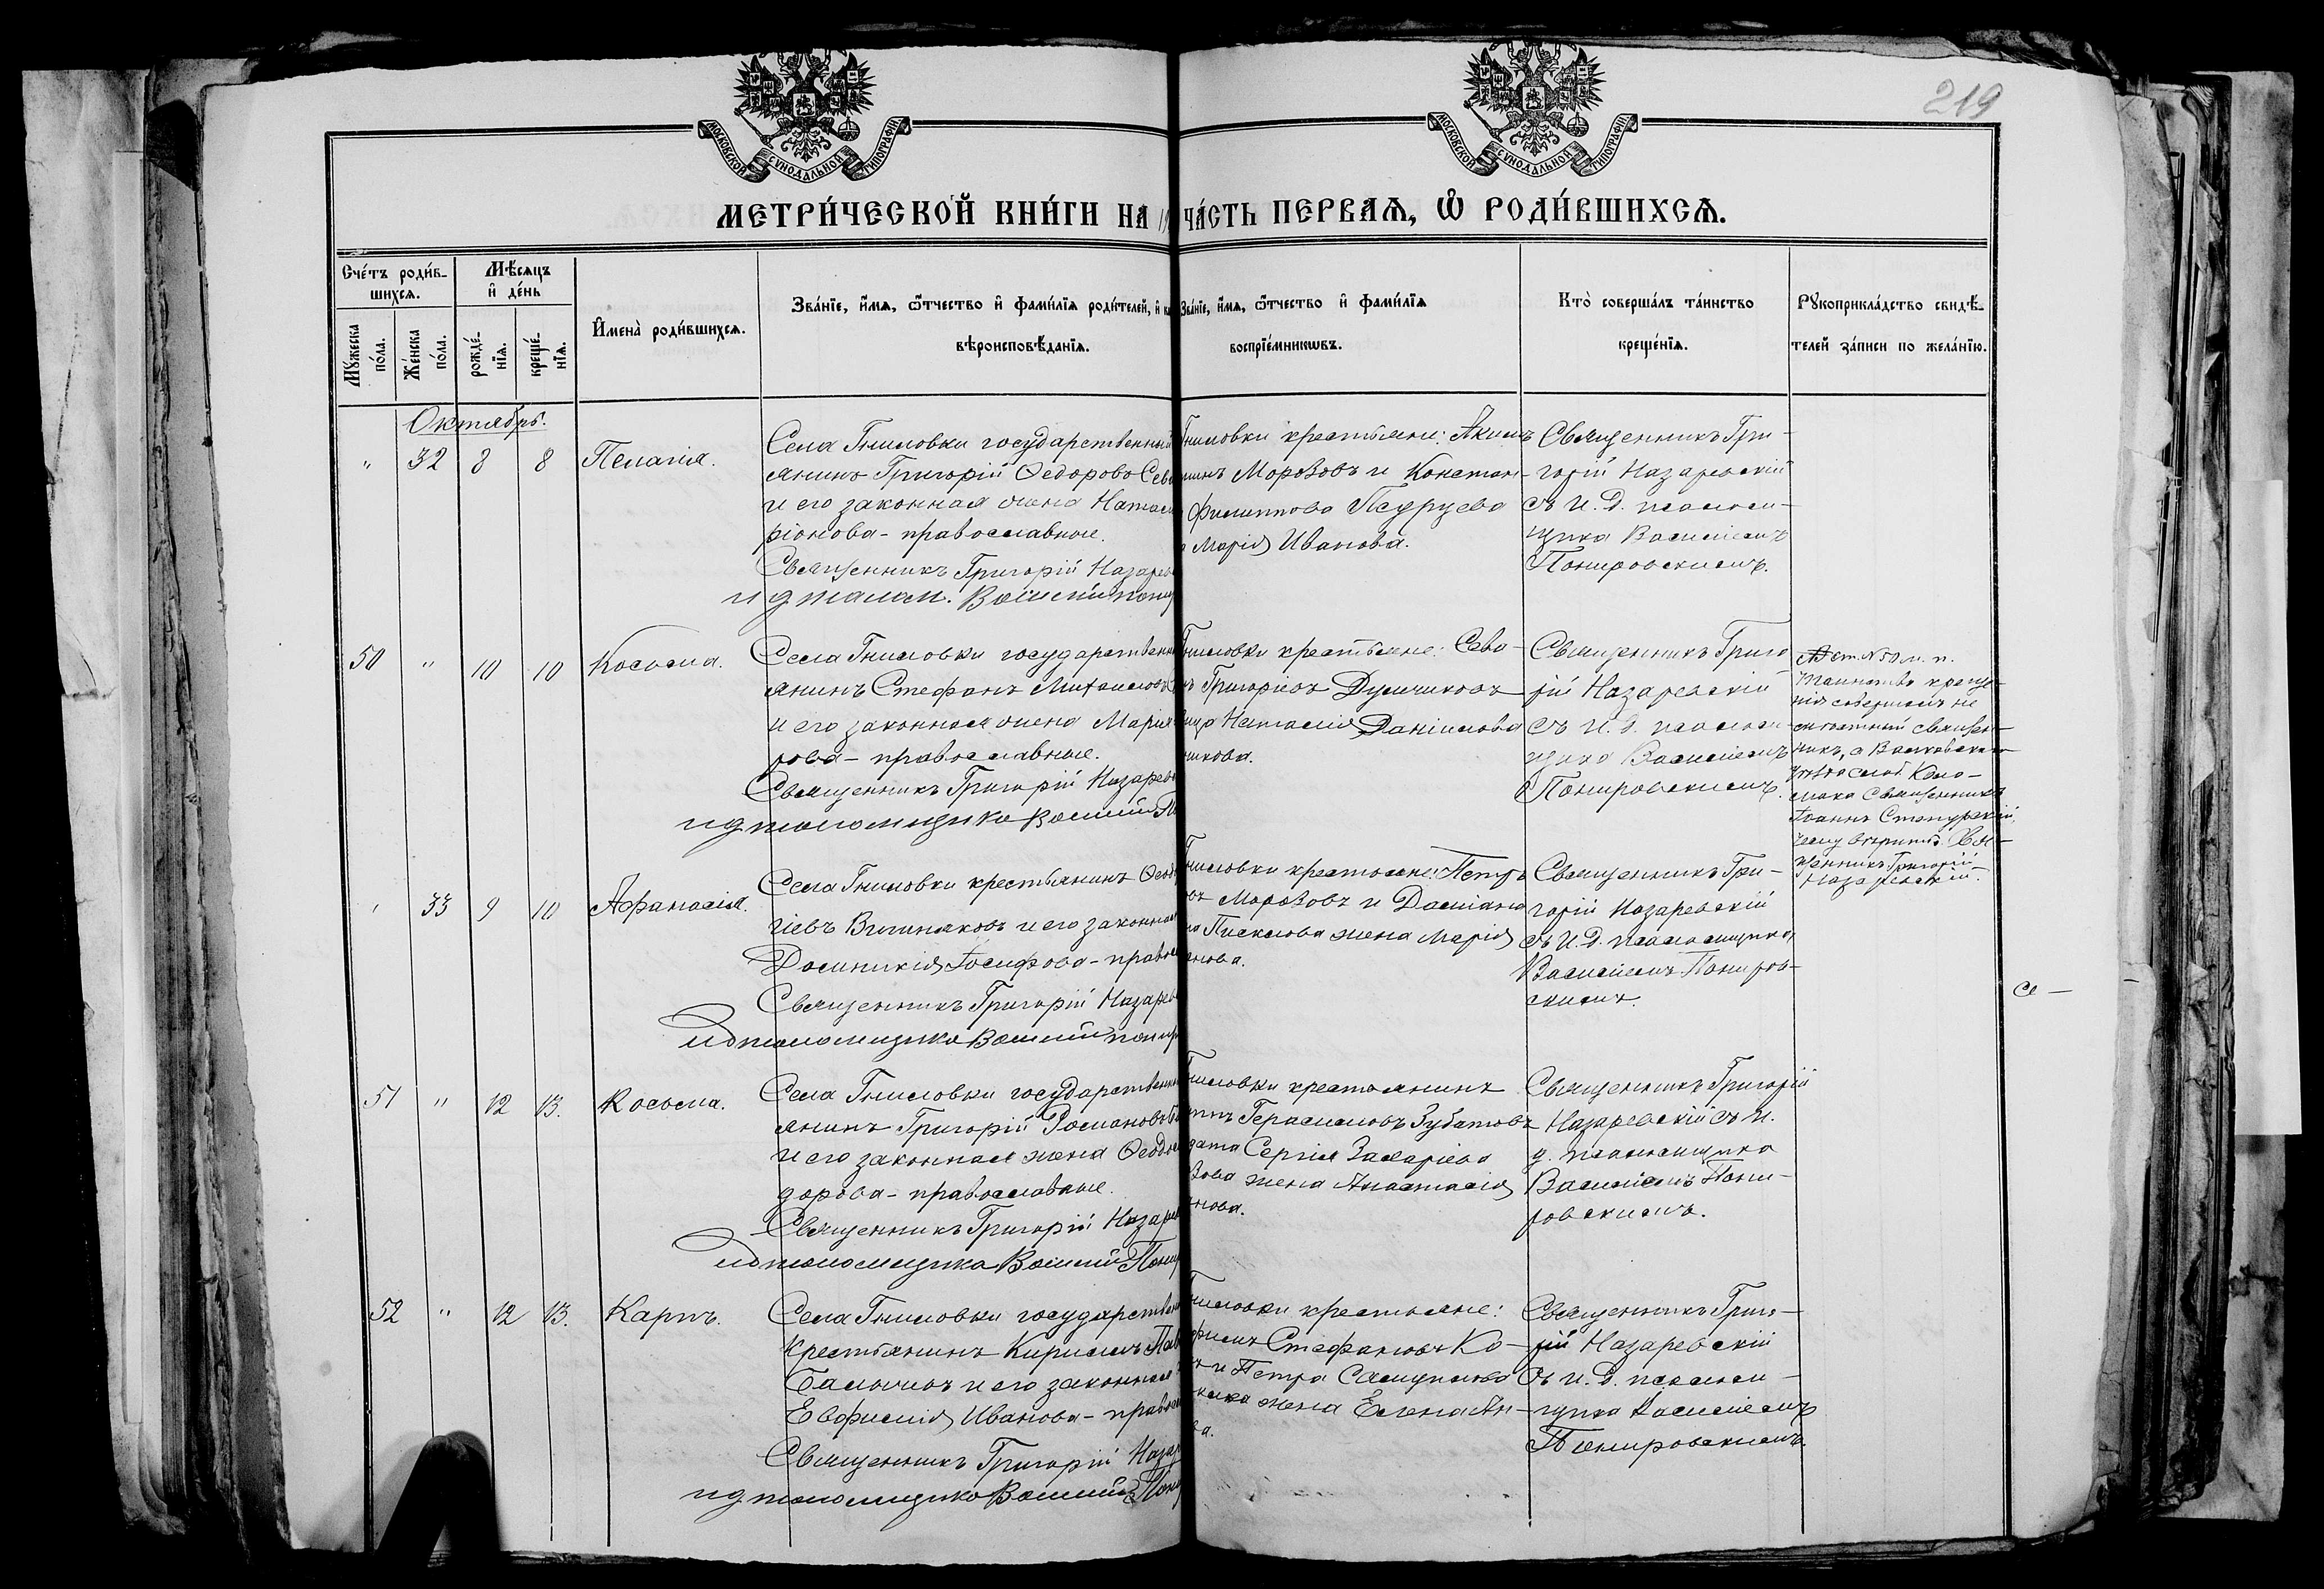 219
МОСКОВСКОЙ СѴНОДАЛЬНОЙ ТИПОГРАФІИ
МОСКОВСКОЙ СѴНОДАЛЬНОЙ ТИПОГРАФІИ
МЕТРИ́ЧЕСКОЙ КНИ́ГИ НА 19
ЧА́СТЬ ПЕРВАѦ, Ѡ҆ РОДИ́ВШИХСѦ.
Сче́тъ роди́в-
шихсѧ.
Мꙋ́жеска
по́ла.
Же́нска
по́ла.
Мѣ́сѧцъ
и҆ де́нь
рожде́-
нїѧ.
креще́-
нїѧ.
И҆мена̀ роди́вшихсѧ.
Зва́нїе, и҆́мѧ, ѻ҆́тчество и҆ фами́лїѧ роди́телей, и҆
вѣроисповѣ́данїѧ.
Зва́нїе, и҆́мѧ, ѻ҆́тчество и҆ фами́лїѧ
воспрїе́мникѡвъ.
Кто̀ соверша́лъ та́инство
креще́нїѧ.
Рꙋкоприкла́дство свидѣ́-
телей за́писи по жела́нїю.
Октябрь.
" 32 8 8 Пелагія.
Села Гниловки государственный
янинъ Григорій Ѳедоровъ Сев
и его законная жена Натал
ріонова - православные.
Священникъ Григорій Назарев
и д псалом. Василій Пони
Гниловки крестьяне: Акимъ
Морозовъ и Констан-
Филиппова
Марія Иванова.
Священникъ Гри-
горій Назаревскій
съ И. Д. псалом-
щика Василіемъ
Понировскимъ.
50 " 10 10 Косьма.
Села Гниловки государственн
янинъ Стефанъ Михаиловъ
и его законная жена Марія
рова - православные.
Священникъ Григорій Назарев
и д псаломщика Василій П
Гниловки крестьяне: Сева-
Григоріевъ
Наталія Даніилова
никова.
Священникъ Григо
рій Назаревскій
съ И. д. псалом
щика Василіемъ
Понировскимъ.
Въ ст. №50 м. п.
таинство креще-
нія совершалъ не
священ-
никъ, а Валковскаго
слоб. Коло-
мака Священникъ
Іоаннъ
Свя-
щенникъ Григорій
Назаревскій.
" 33 9 10 Аѳанасія.
Села Гниловки крестьянинъ Ѳеод
гіевъ и его законная
Домникія Іосифова - правос
Священникъ Григорій Назарев
И д псаломщика Василій Понир
Гниловки крестьяне: Петръ
Морозовъ и Даміана
жена Марія
нова.
Священникъ Гри-
горій Назаревскій
съ И. Д. псаломщика
Василіемъ Пониров-
скимъ.
51 " 12 13. Косьма.
Села Гниловки государственн
янинъ Григорій Романовъ
и его законная жена Ѳеодо
дорова - православные.
Священникъ Григорій Назарев
И д псаломщика Василій Понир
Гниловки крестьянинъ
Герасимовъ Зубатовъ
Сергія Захаріева
зова жена Анастасія
нова.
Священникъ Григорій
Назаревскій съ И.
д. псаломщика
Василіемъ Пони-
ровскимъ.
52 " 12 13. Карпъ.
Села Гниловки государствен
крестьянинъ Кириллъ Пав
и его законная
Евфимія Иванова - правосл
Священникъ Григорій Назар
и д псаломщика Василій Пони
Гниловки крестьяне:
Стефановъ Ко-
и Петра
жена Елена Ан-
ва.
Священникъ Григо-
рій Назаревскій
съ И. Д. псалом-
щика Василіемъ
Понировскимъ.